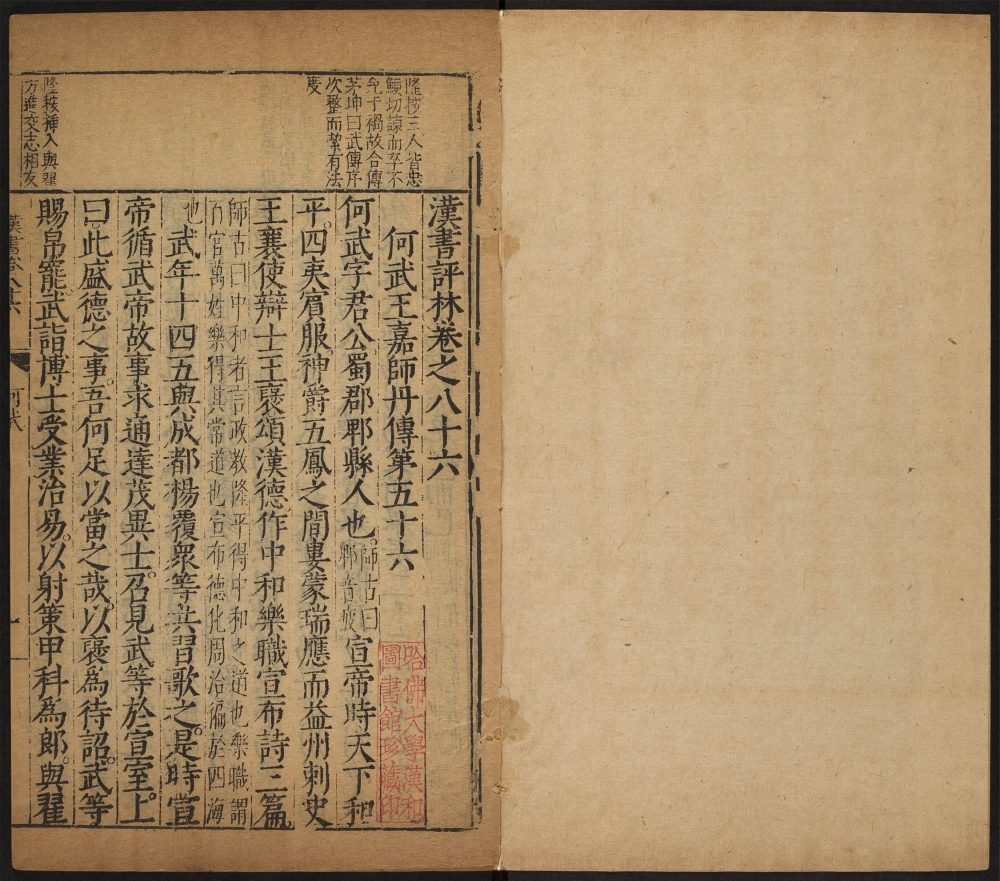 隆按三人皆忠
鯁切諫而卒不
免于禍故合傳
茅坤曰武傳序
次整而絜有法
度
隆按揷入與翟
方進交志相友
漢書評林卷之八十六
何武王嘉師丹傳第五十六
何武字君公蜀郡郫縣人也。師古曰郫音疲宣帝時天下和
平。四夷賓服。神爵五鳳之間婁蒙瑞應而益州刺史
王襄使辯士王褒頌漢德作中和樂職宣布詩三篇。
師古曰中和者言政教隆平得中和之道也樂職謂
百官萬姓樂得其常道也宣布德化周洽徧於四海
也武年十四五與成都楊覆衆等共習歌之。是時宣
帝循武帝故事求通達茂異士。召見武等於宣室。上
曰。此盛德之事。吾何足以當之哉。以褒爲待詔。武等
賜帛寵武詣博士受業治易。以射策甲科爲郎。與翟
漢書卷八十六
何武
一
哈佛大學漢和
圖書館珍藏印